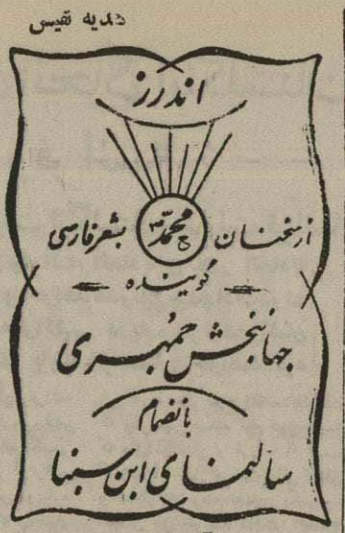 هدیه نفیس
اندرز
از سخنان محمد ص بشعر فارسی
گوینده
جهانبخش جمهری
بانضمام
سالنمای ابن سینا